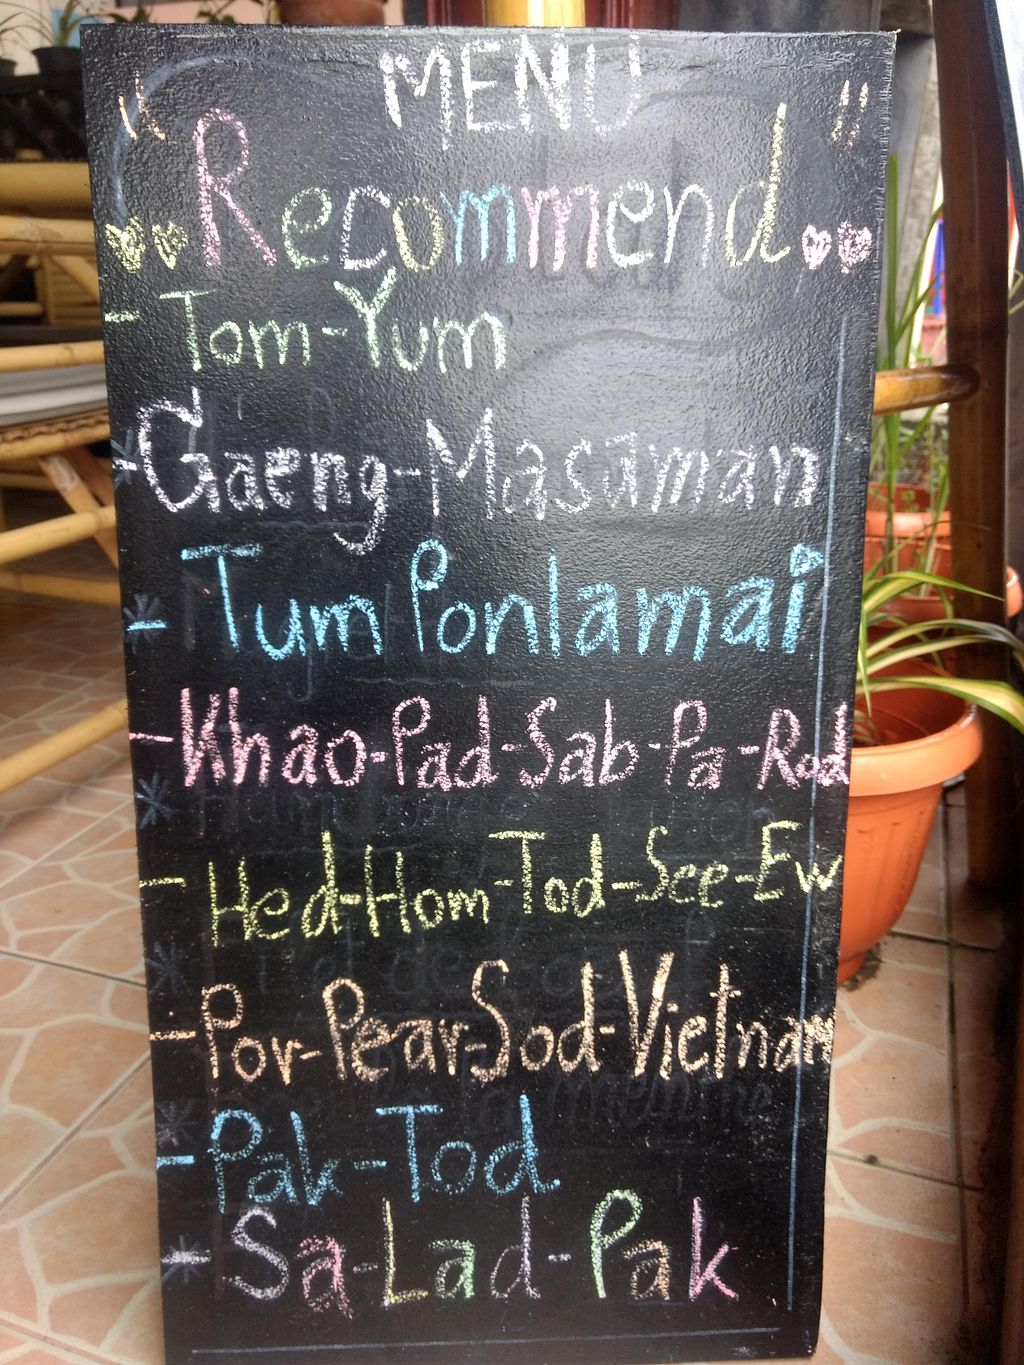 MENU
"Recommend"
- Tom-Yum
- Gaeng-Masaman
- Tum Ponlamai
- Khao-Pad-Sab-Pa-Rod
- Hed-Hom-Tod-See-Ew
- Por-Pear-Sod-Vietnam
- Pak-Tod
- Sa-Lad-Pak